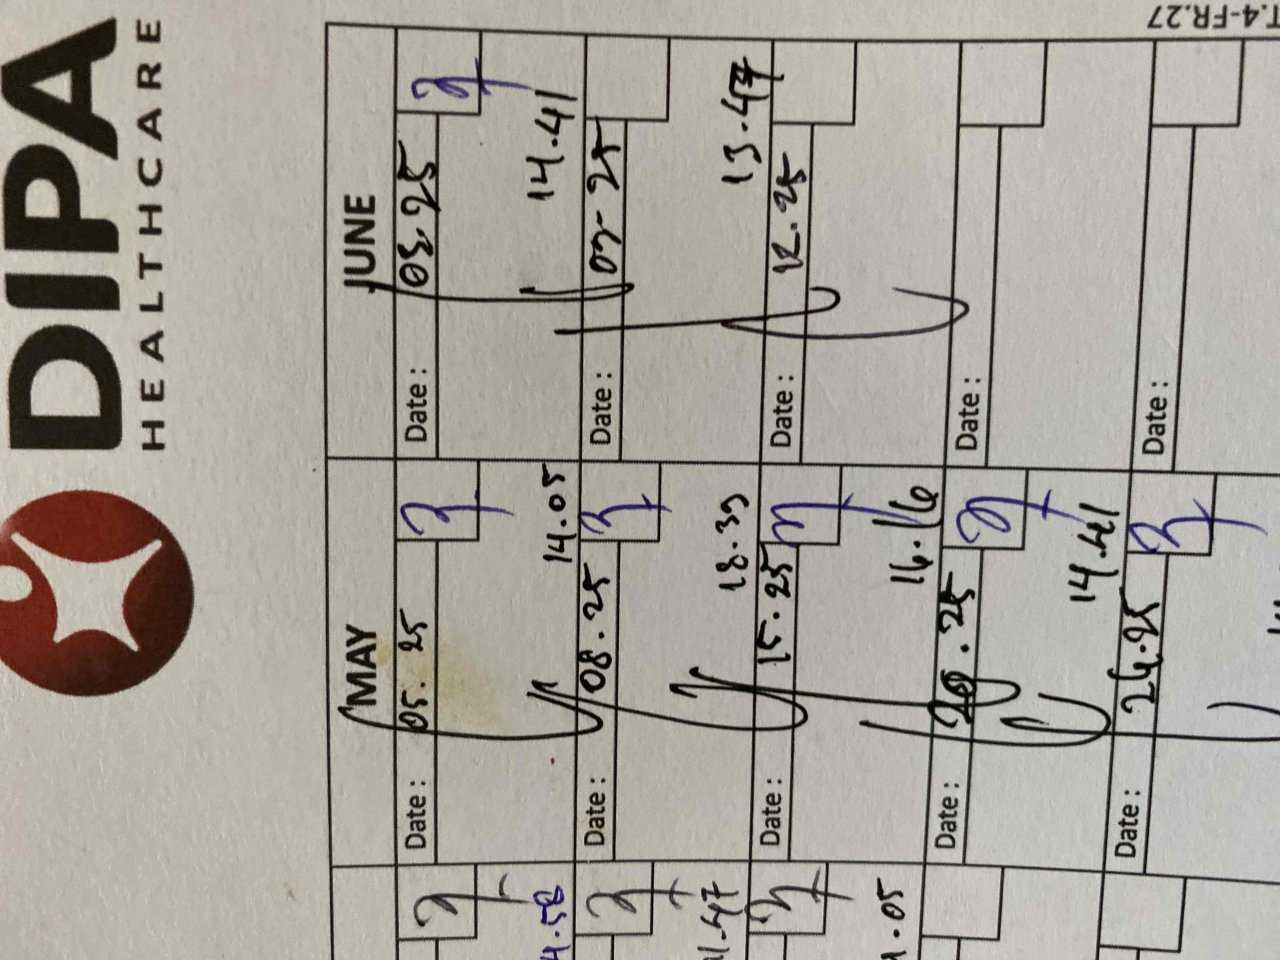 DIPA
HEALTHCARE
MAY JUNE
Date : 05.25 Date : 03.25
4.58 14.05 14.41
Date : 08.25 Date : 09-25
1.47 18.39 13.47
Date : 15.25 Date : 12.25
1.05 16.16
Date : 20.25 Date :
14.41
Date : 24.25 Date :
T.4-FR.27